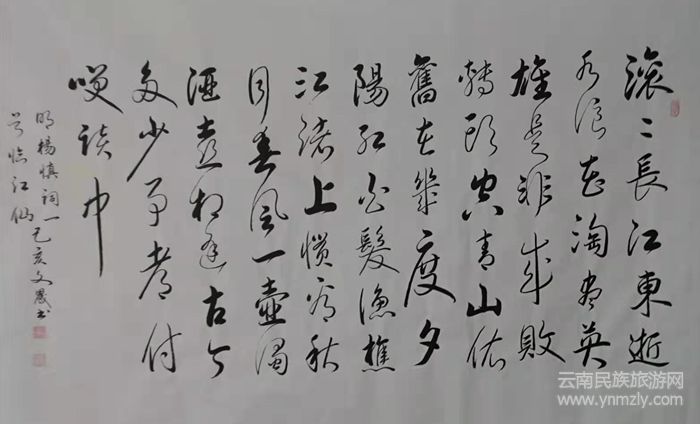 滚〻長江東逝
水浪花淘盡英
雄是非成敗
轉頭空青山依
舊在幾度夕
陽紅白髮漁樵
江渚上慣看秋
月春风一壺濁
酒喜相逢古今
多少事都付
咲談中
明楊慎詞一
首臨江仙
己亥文晟书
云南民族旅游网
www.ynmzly.com